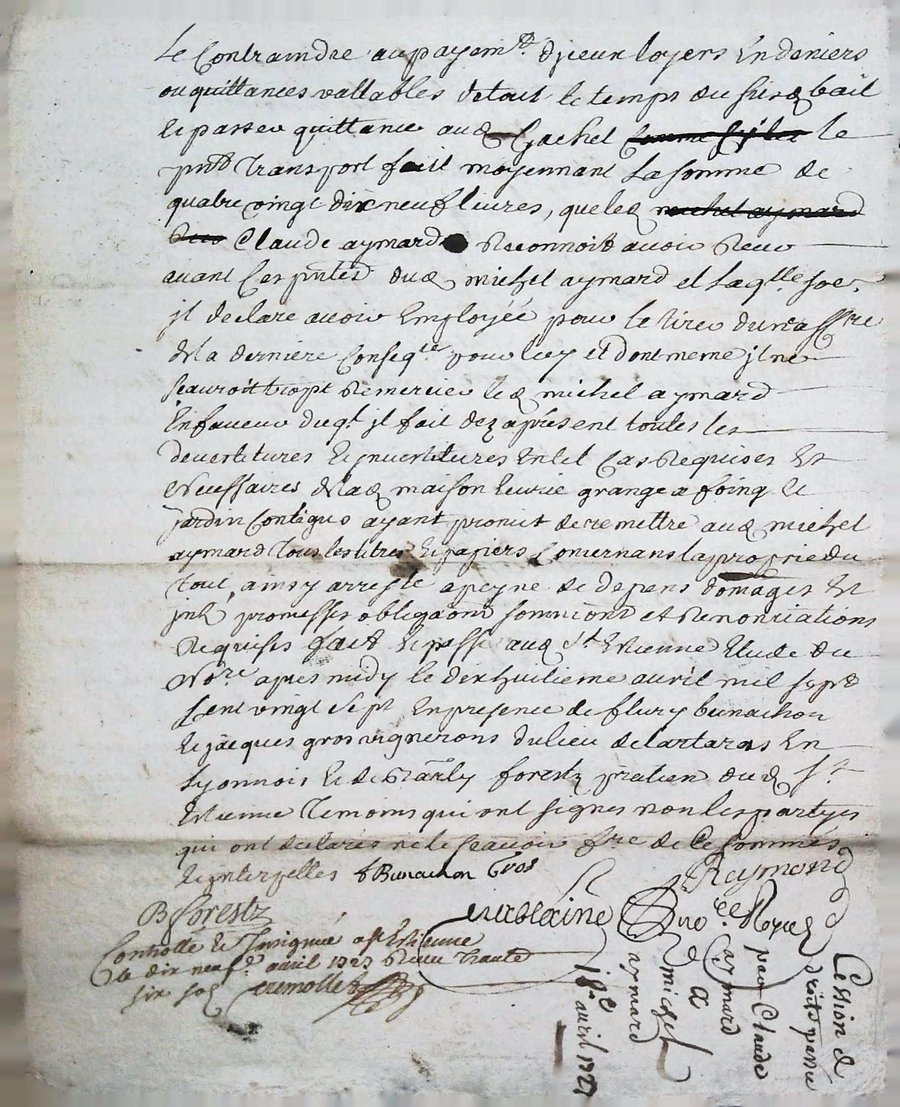 le Contraindre au payem.t d'jceux loyers En deniers
ou quittances vallables de tout le temps du susd bail
Et passer quittance aud Gachel le
pnt Transport fait moyennant La somme de
quatre vingt dix neuf livres, que led michel aymard
Claude aymard Reconnoit avoir Receu
avant Ces pntes dud michel aymard et Laq.lle so.e
jl declare avoir Employée pour le tirer du
de La derniere Conseq.ce pour luy et dont meme jl ne
scauroit trop Remercier led michel aymard
En faveur duq.l jl fait dez a présent toutes les
devestitures Et jnvestitures En tel Cas Requises Et
Necessaires de lad maison Ecurie grange a foing Et
jardin Contigus ayant promit de remettre aud michel
aymard Tous les titres Et papiers Concernans la proprie du
Tout, ainsy arresté a peyne de depens domages Et
jnts promesses obligaons somnions et Renonciations
Requises fait Et passé aud S.t Etienne Etude du
No.re apres midy le dix huitieme avril mil sept
Cent vingt sept En presence de flury bunachon
Et jacques gros vignerons du lieu de tartaras En
Lyonnois Et de forestz praticien dud S.t
Etienne Temoins qui ont signes non les partyes
qui ont declarés ne le scavoir f.re de Ce sommés
Et jnterpelles F Bunachon Gros
Reymond
B forestz
Controllé Et Insignué a S.t Etienne
le dix neuf.e avril 1727 Receu Trante
six sols
Cession de
droits passée
par Claude
aymard
a
michel
aymard
18.e avril 1727